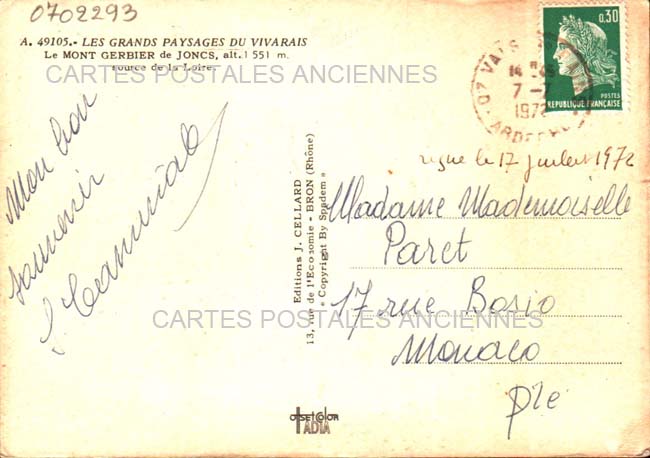 0702293
A. 49105.- LES GRANDS PAYSAGES DU VIVARAIS
Le MONT GERBIER de JONCS, alt. 1 551 m.
source de la Loire
CARTES POSTALES ANCIENNES
Mon bon
souvenir
Editions J. CELLARD
13, rue de l'Ecosomie - BRON (Rhône)
« Copyright By Spadem »
0,30
POSTES
REPUBLIQUE FRANÇAISE
07 VALS
14 H 45
7-7
1972
ARDECHE
reçue le 17 juillet 1972
Madame Mademoiselle
Paret
17 rue Bosio
CARTES POSTALES ANCIENNES
Monaco
Pté
OFFSETCOLOR
TADIA